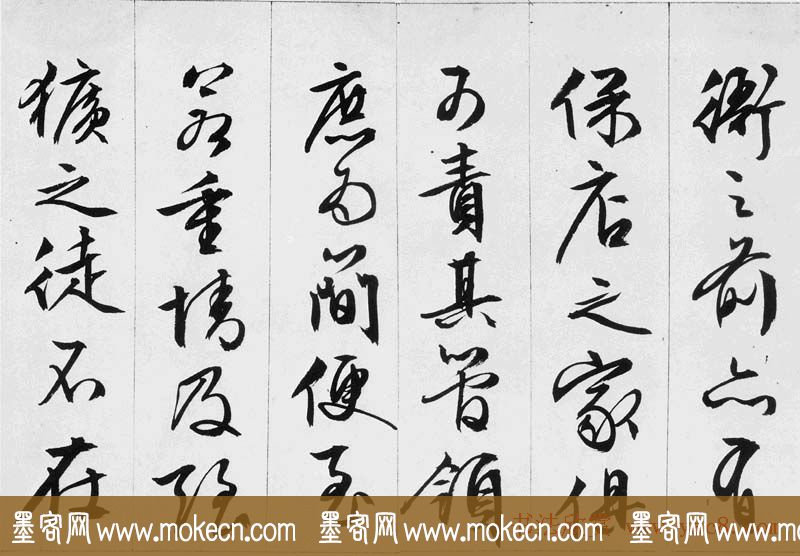 衙之前亦有
保店之家俱
可責其管領
庶為簡便至
若重情及強
獷之徒不在
墨客网 www.mokecn.com 墨客网 www.mokecn.com 墨客网 www.mokecn.com